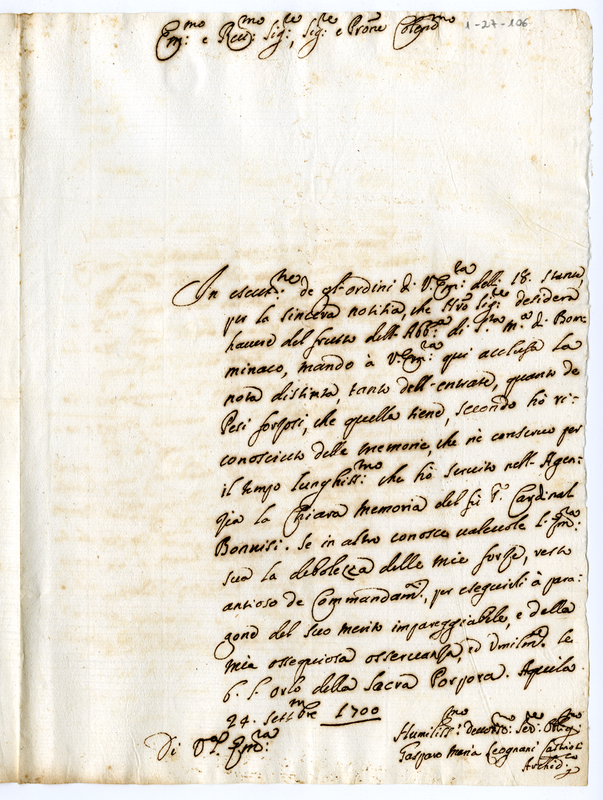 Em:mo e Reu:mo Sig:re, Sig:re e Prone Colend:mo
1-27-106
In esecut:ne de gl'ordini di V. Em:za delli 18. stante,
per la sincera notitia, che Nro Sig:re desidera
hauere del frutto dell'Abb:a di S.ta M.a di Bom=
minaco, mando à V. Em:za qui acclusa la
nota distinta, tanto dell'entrate, quanto de
Pesi forzosi, che quella tiene, secondo hò ri=
conosciuto dalle memorie, che ne conseruo per
il tempo lunghiss:mo che hò seruito nell'Agen=
zia la Chiara memoria del fù S.r Cardinal
Bonuisi. Se in altro conosce ualeuole l'Em:za
sua la debolezza delle mie forze, resto
antioso de Commandam.ti, per eseguirli à para=
gone del suo merito impareggiabile, e della
mia ossequiosa osseruanza, ed Umilm.te le
b. l'orlo della Sacra Porpora. Aquila
24. Settembre 1700
Di V. Em:za
Humiliss:mo deuotis:mo Ser:re Obl:mo
Gasparo Maria Leognani Castrioti
Archid:no